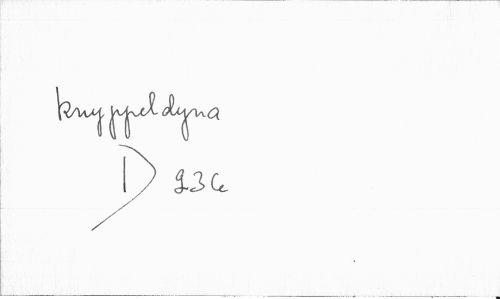 knyppeldyna
D 23c